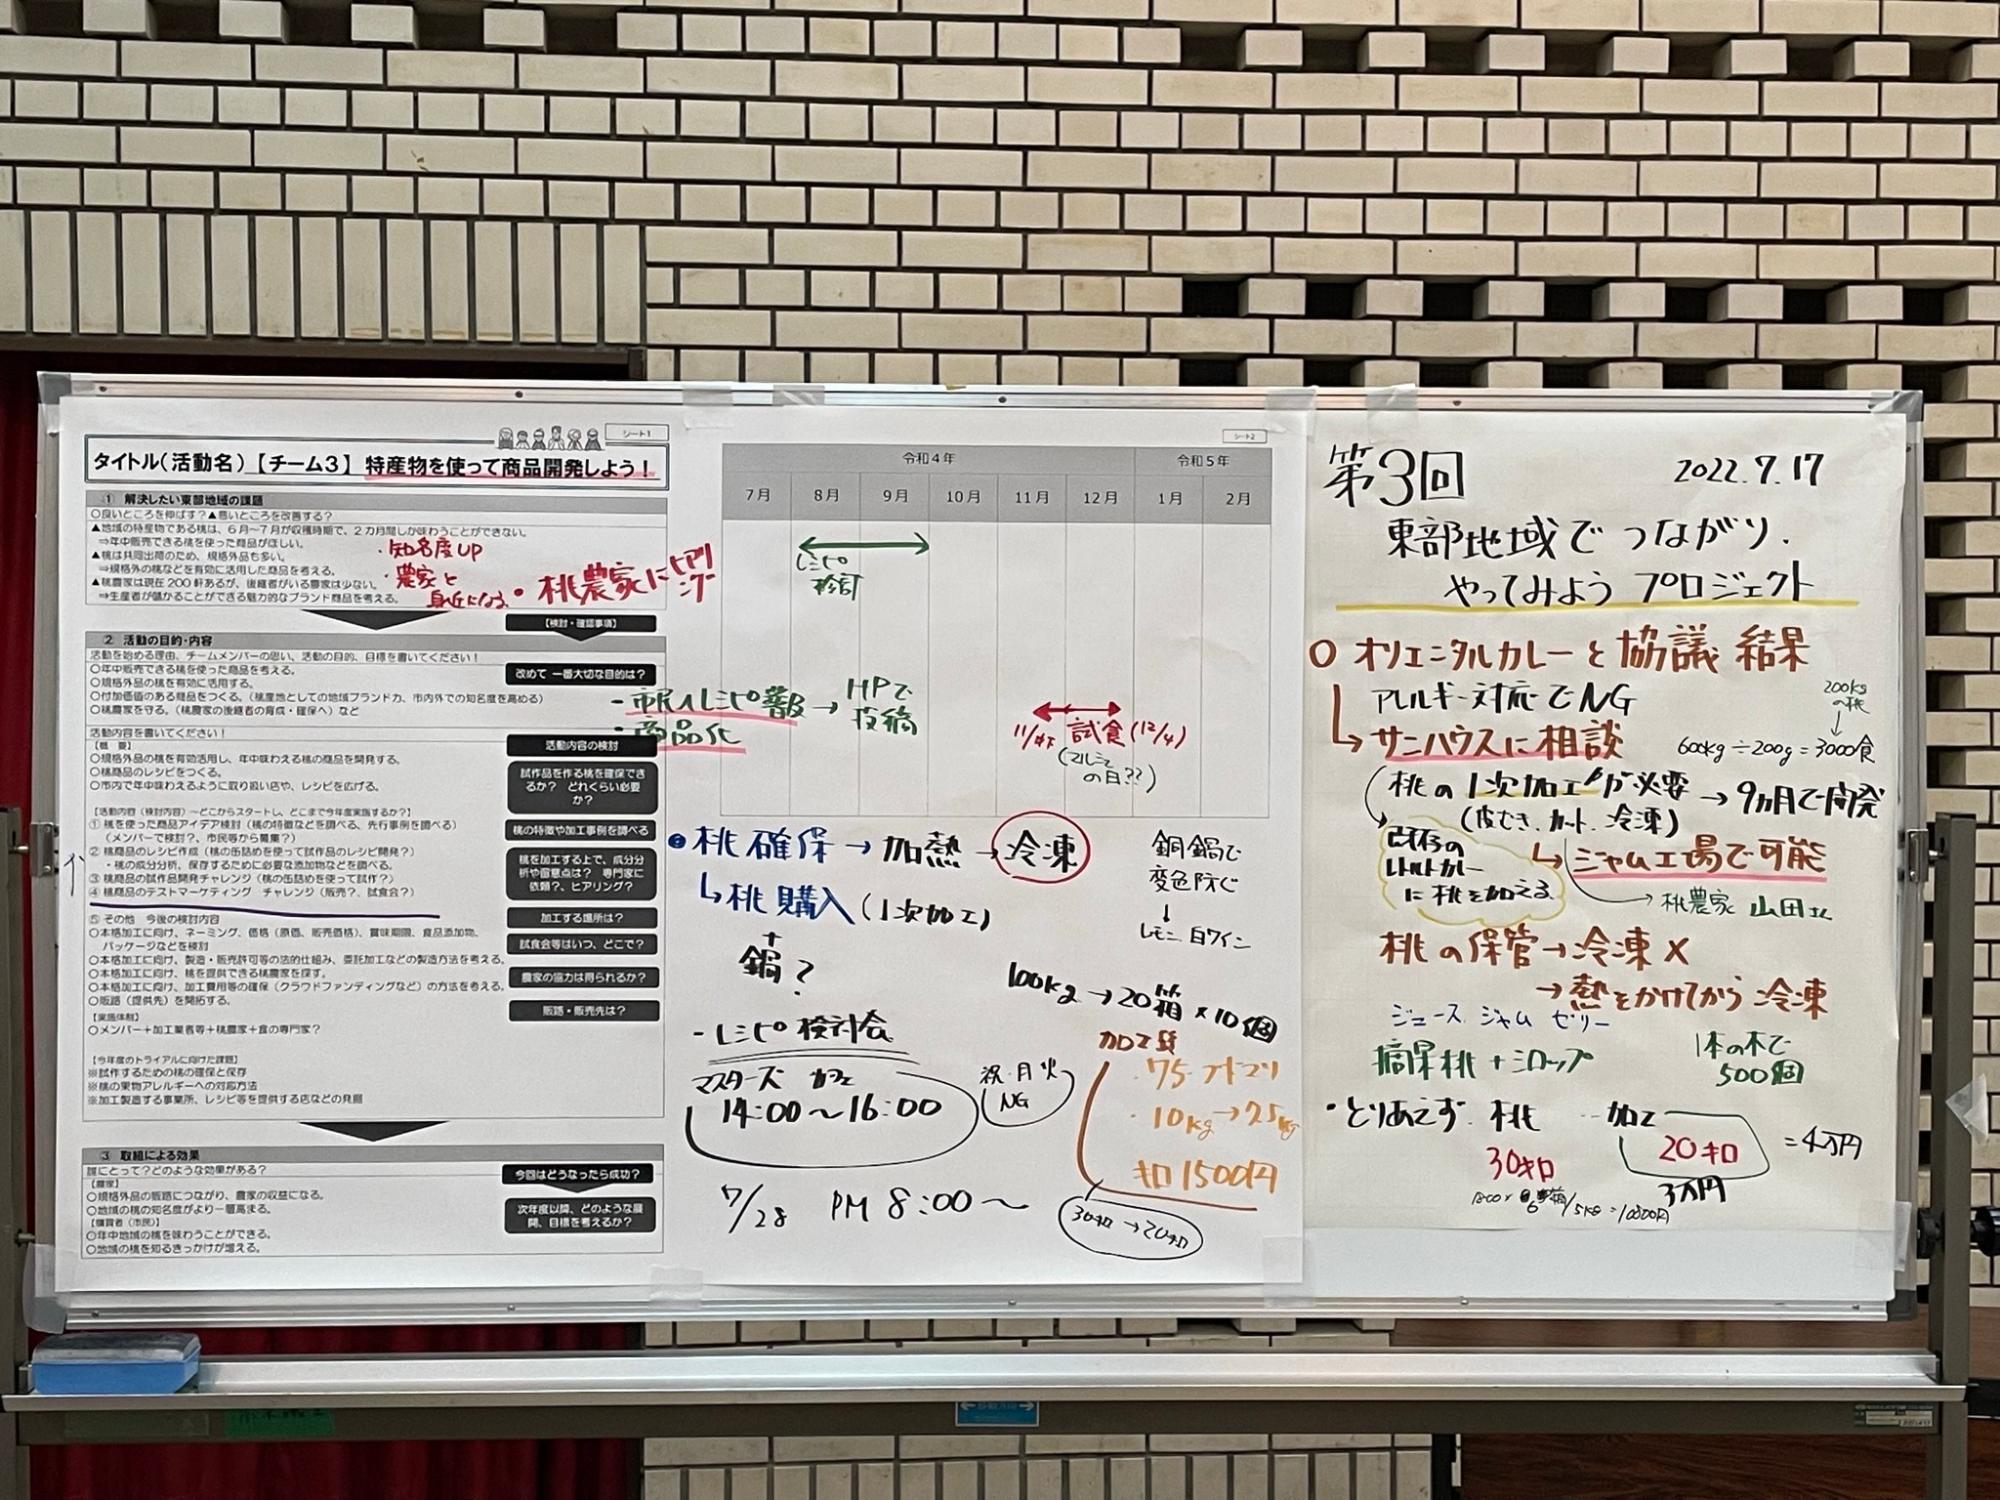 シート1
タイトル(活動名)【チーム3】特産物を使って商品開発しよう！
① 解決したい東部地域の課題
○良いところを伸ばす？▲悪いところを改善する？
▲地域の特産物である桃は、6月～7月が収穫時期で、2カ月間しか味わうことができない。
⇒年中販売できる桃を使った商品がほしい。
▲桃は共同出荷のため、規格外品も多い。
⇒規格外の桃などを有効に活用した商品を考える。
▲桃農家は現在200軒あるが、後継者がいる農家は少ない。
⇒生産者が儲かることができる魅力的なブランド商品を考える。
・知名度UP
・農家と
身近になる
・桃農家にヒアリング
【検討・確認事項】
② 活動の目的・内容
活動を始める理由、チームメンバーの思い、活動の目的、目標を書いてください！
○年中販売できる桃を使った商品を考える。
○規格外品の桃を有効に活用する。
○付加価値のある商品をつくる。(桃産地としての地域ブランド力、市内外での知名度を高める)
○桃農家を守る。(桃農家の後継者の育成・確保へ)など
改めて 一番大切な目的は？
活動内容を書いてください！
【概 要】
○規格外品の桃を有効活用し、年中味わえる桃の商品を開発する。
○桃商品のレシピをつくる。
○市内で年中味わえるように取り扱い店や、レシピを広げる。
【活動内容(検討内容)～どこからスタートし、どこまで今年度実施するか？】
① 桃を使った商品アイデア検討(桃の特徴などを調べる、先行事例を調べる)
(メンバーで検討？、市民等から募集？)
② 桃商品のレシピ作成(桃の缶詰めを使って試作品のレシピ開発？)
・桃の成分分析、保存するために必要な添加物などを調べる。
③ 桃商品の試作品開発チャレンジ(桃の缶詰めを使って試作？)
④ 桃商品のテストマーケティング チャレンジ(販売？、試食会？)
⑤ その他 今後の検討内容
○本格加工に向け、ネーミング、価格(原価、販売価格)、賞味期限、食品添加物、
パッケージなどを検討
○本格加工に向け、製造・販売許可等の法的仕組み、委託加工などの製造方法を考える。
○本格加工に向け、桃を提供できる桃農家を探す。
○本格加工に向け、加工費用等の確保(クラウドファンディングなど)の方法を考える。
○販路(提供先)を開拓する。
【実施体制】
○メンバー＋加工業者等＋桃農家＋食の専門家？
【今年度のトライアルに向けた課題】
※試作するための桃の確保と保存
※桃の果物アレルギーへの対応方法
※加工製造する事業所、レシピ等を提供する店などの発掘
活動内容の検討
試作品を作る桃を確保できるか？ どれくらい必要か？
桃の特徴や加工事例を調べる
桃を加工する上で、成分分析や留意点は？ 専門家に依頼？、ヒアリング？
加工する場所は？
試食会等はいつ、どこで？
農家の協力は得られるか？
販路・販売先は？
③ 取組による効果
誰にとって？どのような効果がある？
【農家】
○規格外品の販路につながり、農家の収益になる。
○地域の桃の知名度がより一層高まる。
【購買者(市民)】
○年中地域の桃を味わうことができる。
○地域の桃を知るきっかけが増える。
今回はどうなったら成功？
次年度以降、どのような展開、目標を考えるか？
シート2
令和4年 令和5年
7月 8月 9月 10月 11月 12月 1月 2月
レシピ
検討
- 市民へレシピ募 → HPで
投稿
・商品化
試食(12/4)
(マルシェ
の日??)
桃確保→加熱→冷凍
↳桃購入(1次加工)
+
鍋？
銅鍋で
変色防ぐ
↓
レモン 白ワイン
100kg→20箱×10個
- レシピ検討会
マスターズ カフェ
14:00～16:00
祝・月・火
NG
加工賃
・10kg→2.5kg
キロ1500円
7/28 PM 8:00～
30キロ→20キロ
第3回 2022.7.17
東部地域でつながり、
やってみよう プロジェクト
○ オリエンタルカレーと協議結果
アレルギー対応でNG
↳サンハウスに相談
200kg
の桃
↓
600kg÷200g=3000食
桃の1次加工が必要→9ヵ月で開発
(皮むき、カット、冷凍)
既存の
レトルトカレー
に桃を加える
↳ジャム工場で可能
桃農家 山田
桃の保管→冷凍×
→熱をかけてから冷凍
ジュース ジャム ゼリー
摘果桃＋シロップ
1本の木で
500個
・とりあえず 桃 … 加工
30キロ 20キロ =4万円
3万円